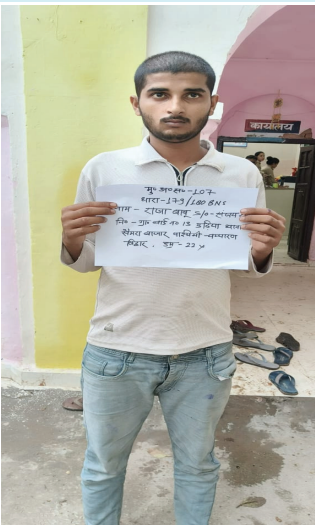 कार्यालय
मु० अ० स०- 107
धारा- 173/180 BNS
नाम - राजा बाबू S/O-
नि०- वार्ड न० 13
सेमरा बाजार चम्पारण
बिहार. उम्र- 22